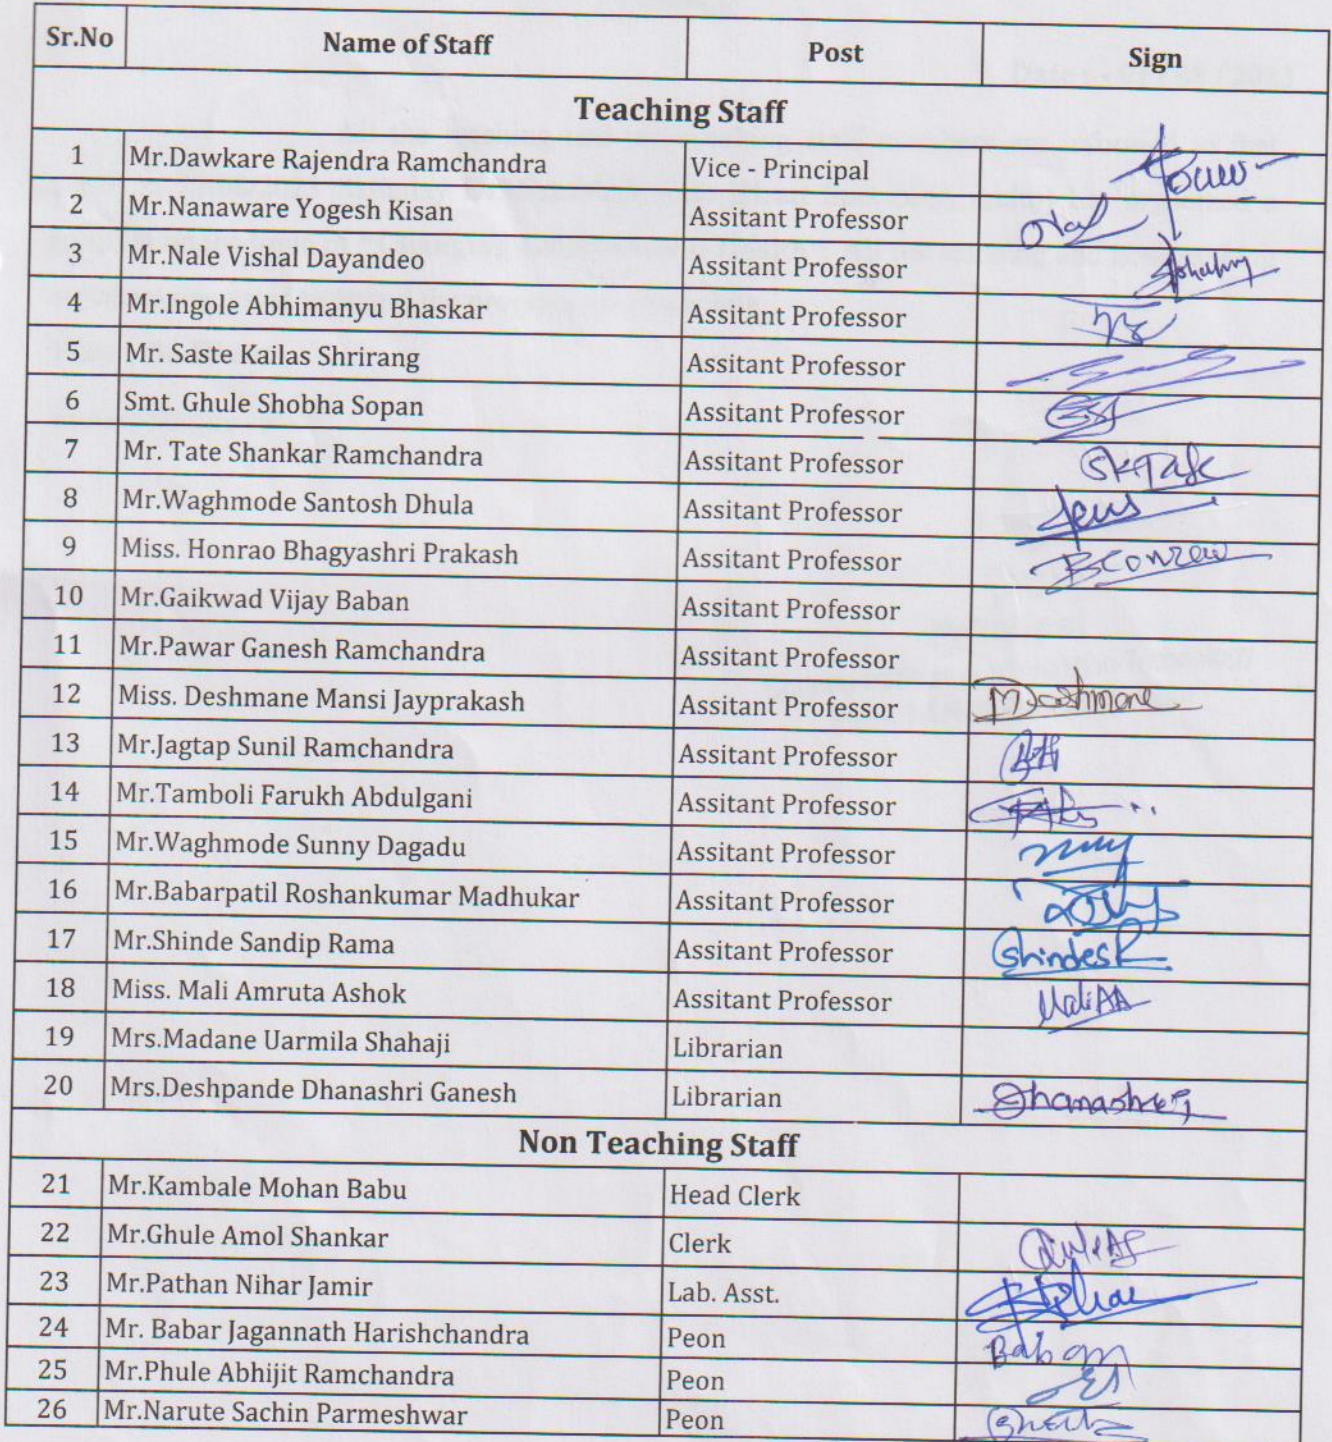 Sr.No Name of Staff Post Sign
Teaching Staff
1 Mr.Dawkare Rajendra Ramchandra Vice - Principal
2 Mr.Nanaware Yogesh Kisan Assitant Professor
3 Mr.Nale Vishal Dayandeo Assitant Professor
4 Mr.Ingole Abhimanyu Bhaskar Assitant Professor
5 Mr. Saste Kailas Shrirang Assitant Professor
6 Smt. Ghule Shobha Sopan Assitant Professor
7 Mr. Tate Shankar Ramchandra Assitant Professor
8 Mr.Waghmode Santosh Dhula Assitant Professor
9 Miss. Honrao Bhagyashri Prakash Assitant Professor
10 Mr.Gaikwad Vijay Baban Assitant Professor
11 Mr.Pawar Ganesh Ramchandra Assitant Professor
12 Miss. Deshmane Mansi Jayprakash Assitant Professor
13 Mr.Jagtap Sunil Ramchandra Assitant Professor
14 Mr.Tamboli Farukh Abdulgani Assitant Professor
15 Mr.Waghmode Sunny Dagadu Assitant Professor
16 Mr.Babarpatil Roshankumar Madhukar Assitant Professor
17 Mr.Shinde Sandip Rama Assitant Professor ShindeSR
18 Miss. Mali Amruta Ashok Assitant Professor MaliAA
19 Mrs.Madane Uarmila Shahaji Librarian
20 Mrs.Deshpande Dhanashri Ganesh Librarian
Non Teaching Staff
21 Mr.Kambale Mohan Babu Head Clerk
22 Mr.Ghule Amol Shankar Clerk
23 Mr.Pathan Nihar Jamir Lab. Asst.
24 Mr. Babar Jagannath Harishchandra Peon
25 Mr.Phule Abhijit Ramchandra Peon
26 Mr.Narute Sachin Parmeshwar Peon